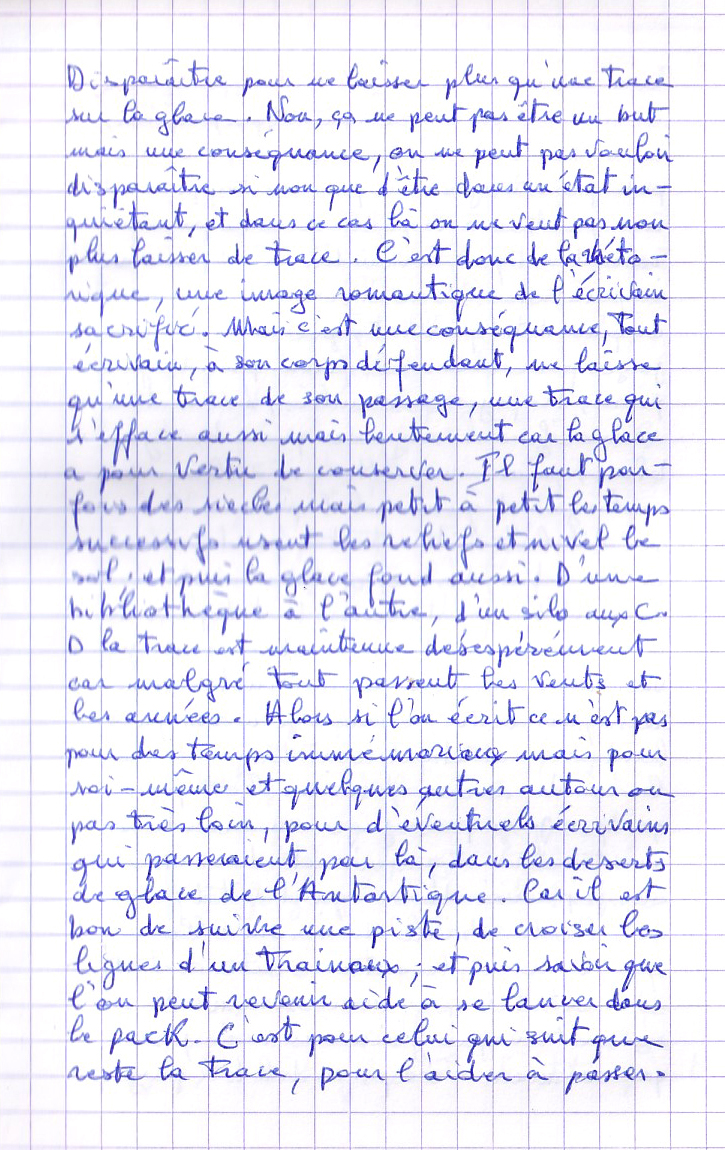 Disparaître pour ne laisser plus qu'une trace
sur la glace. Non, ça ne peut pas être un but
mais une conséquance, on ne peut pas vouloir
disparaître si non que d'être dans un état in-
quiétant, et dans ce cas là on ne veut pas non
plus laisser de trace. C'est donc de la rhéto-
rique, une image romantique de l'écrivain
sacrifié. Mais c'est une conséquance, tout
écrivain, à son corps défendant, ne laisse
qu'une trace de son passage, une trace qui
s'efface aussi mais lentement car la glace
a pour vertu de conserver. Il faut par-
fois des siècles mais petit à petit les temps
successifs usent les reliefs et nivel le
sol, et puis la glace fond aussi. D'une
bibliothèque à l'autre, d'un silo aux C.
D la trace est maintenue désespérément
car malgré tout passent les vents et
les années. Alors si l'on écrit ce n'est pas
pour des temps immémoriaux mais pour
soi-même et quelques autres autour ou
pas très loin, pour d'éventuels écrivains
qui passeraient par là, dans les deserts
de glace de l'Antartique. Car il est
bon de suivre une piste, de croiser les
lignes d'un traineaux; et puis savoir que
l'on peut revenir aide à se lancer dans
le pack. C'est pour celui qui suit que
reste la trace, pour l'aider à passer.